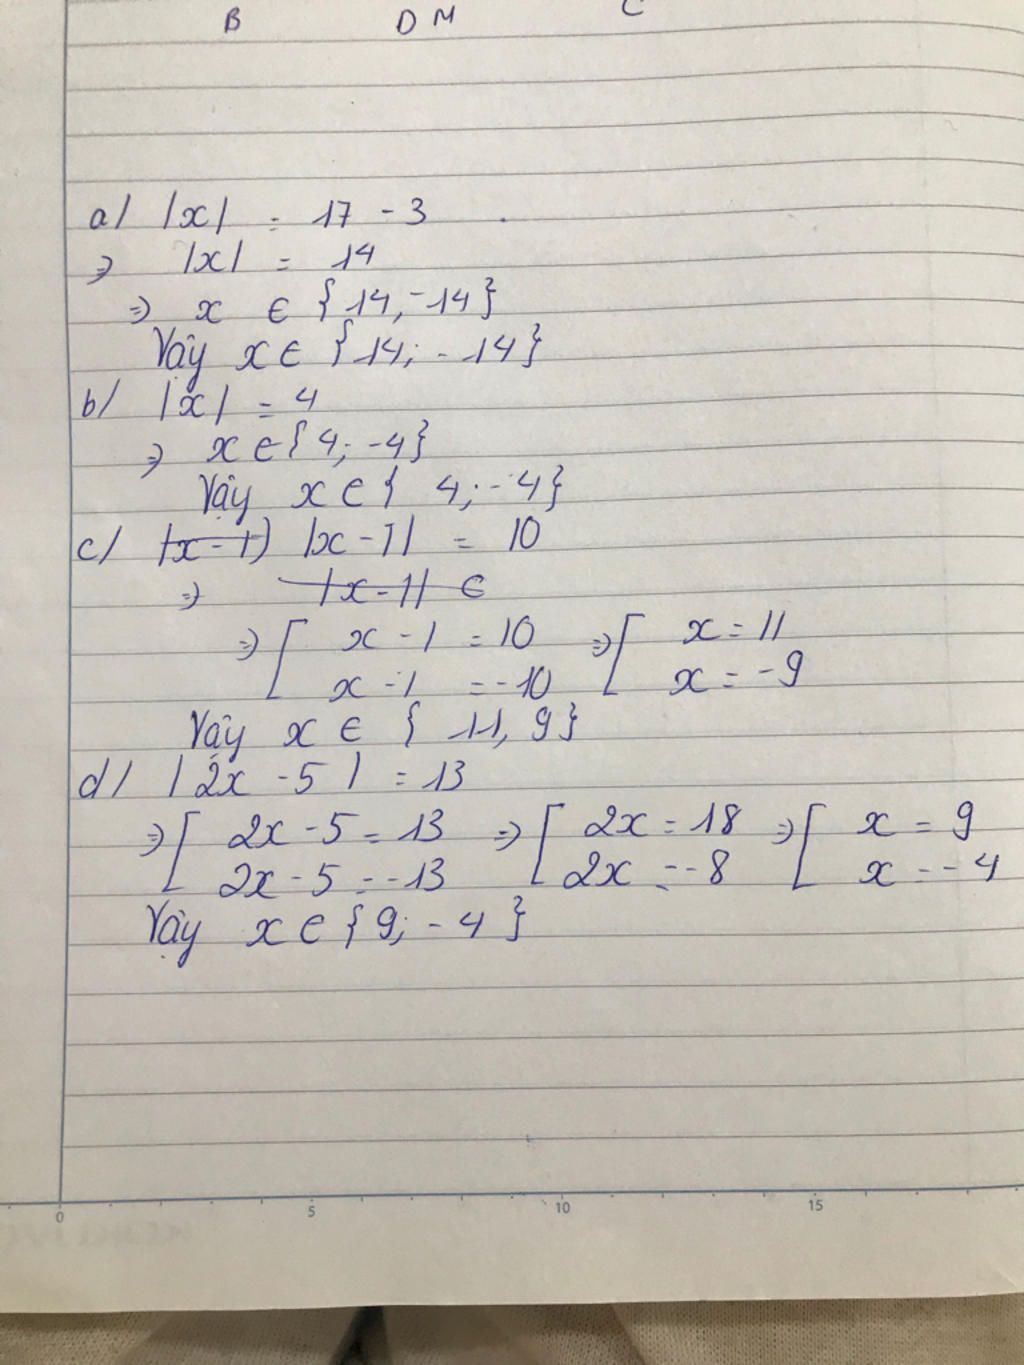 B D M C
a/ |x| = 17 - 3
=> |x| = 14
=> x ∈ {14, -14}
Vậy x ∈ {14; -14}
b/ |x| = 4
=> x ∈ {4; -4}
Vậy x ∈ { 4; -4}
c/ |x - 1) |x - 1| = 10
=> |x - 1| ∈
=> [ x - 1 = 10 => [ x = 11
x - 1 = -10 x = -9
Vậy x ∈ { 11, 9}
d/ | 2x - 5 | = 13
=> [ 2x - 5 = 13 => [ 2x = 18 => [ x = 9
2x - 5 = -13 2x = -8 x = -4
Vậy x ∈ {9; -4 }
0 5 10 15